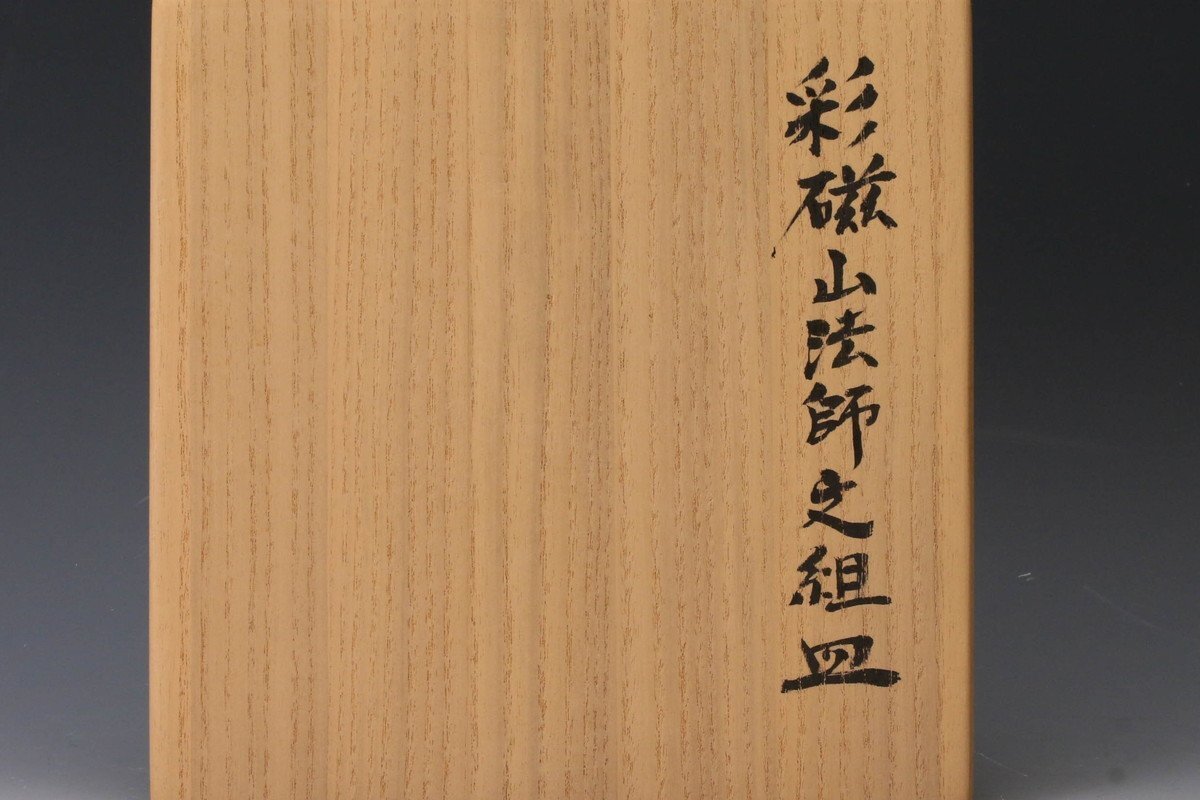 彩磁山法師之組皿